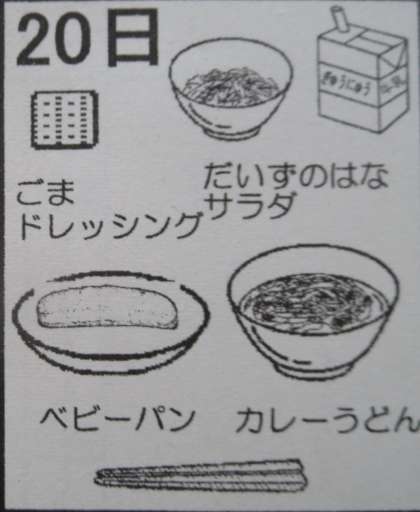 20日
ぎゅうにゅう
だいずのはな
サラダ
ごま
ドレッシング
ベビーパン
カレーうどん